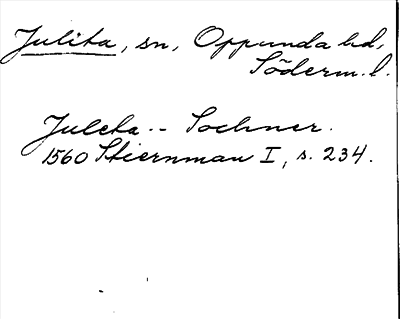 Julita, sn, Oppunda hd,
Söderm. l.
Juleta -- Sochner.
1560 Stiernman I, s. 234.